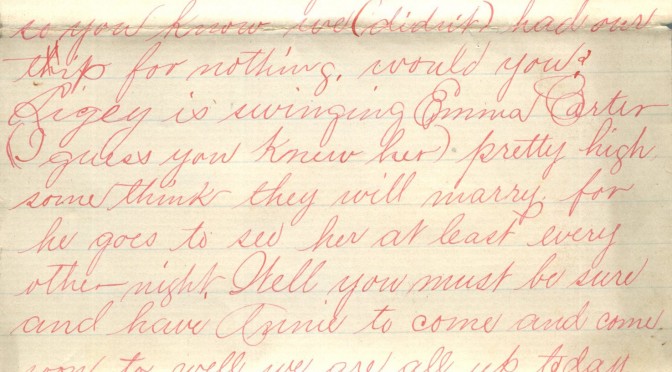 so you know we (didn't) had our
trip for nothing, would you?
Ligey is swinging Emma Carter
(I guess you knew her) pretty high
some think they will marry, for
he goes to see her at least every
other night. Well you must be sure
and have Annie to come and come
soon to well we are all up today